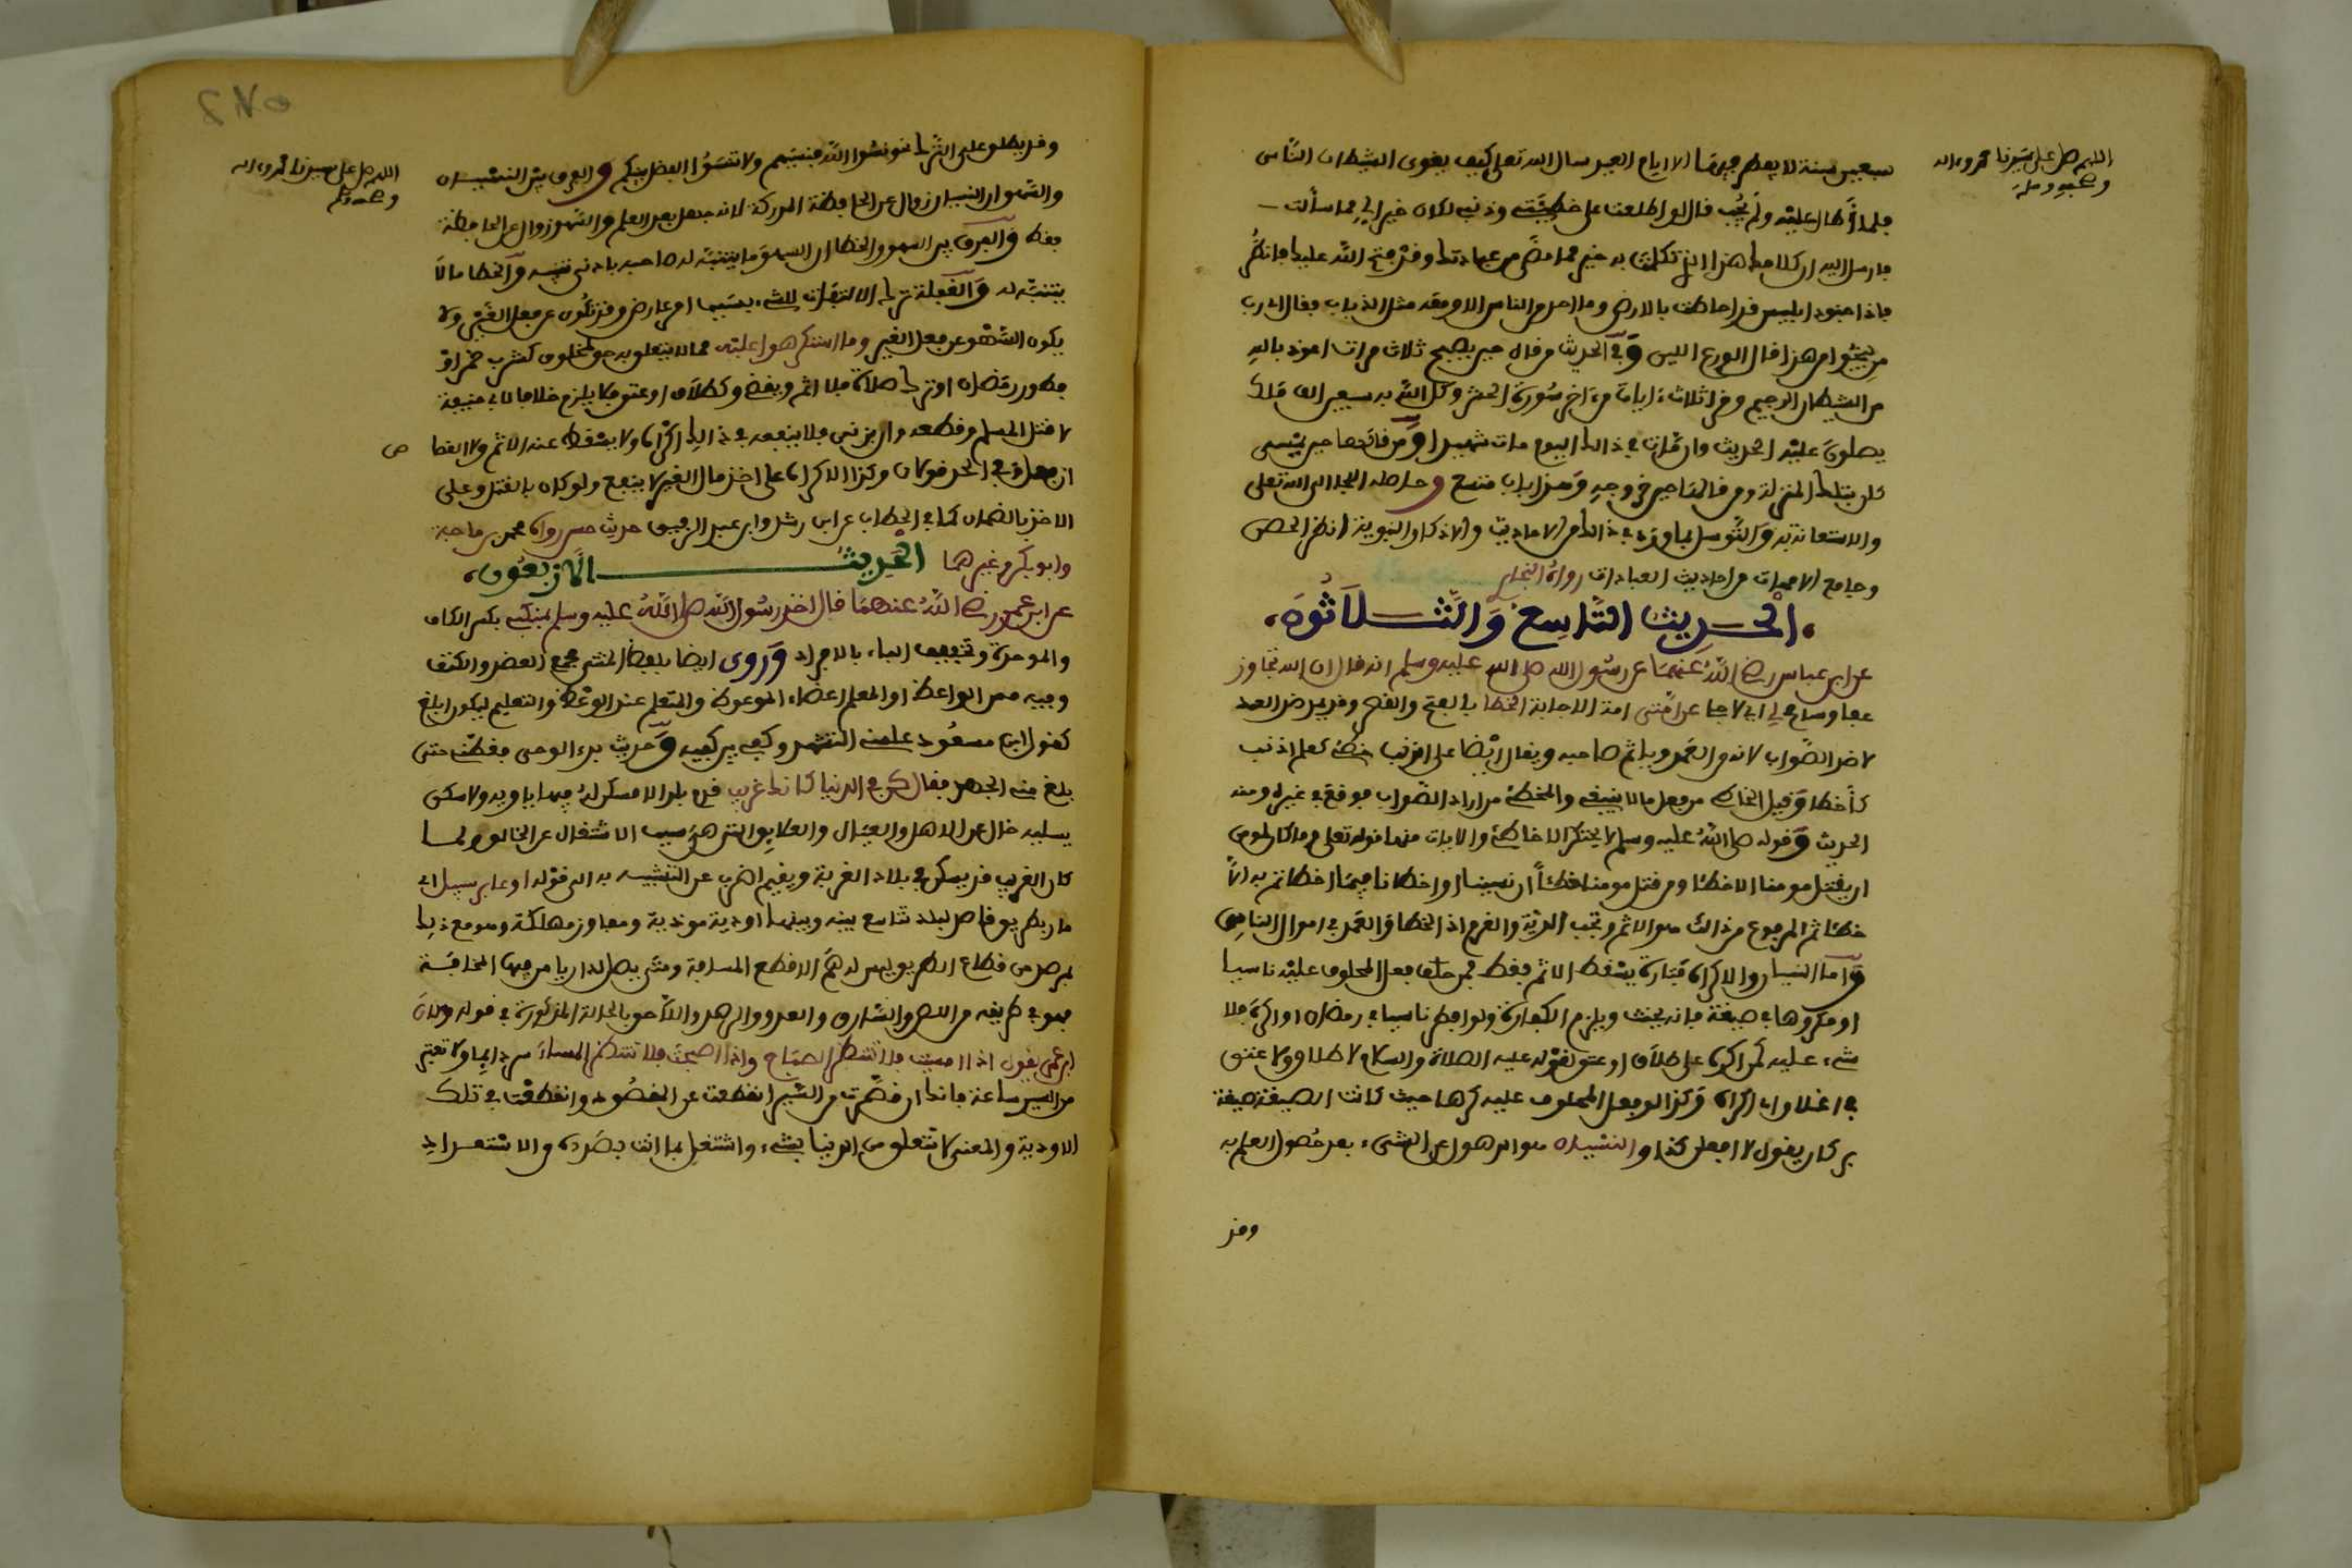 اللهم صل على سيدنا محمد وءاله
وصحبه وسلم
سبعين سنة لا يفطر فيها الا ايام العيد سال الله تعلى كيف يغوى الشيطان الناس
فلما طال عليه ولم يجب قال لو اطلعت على خطيئتى وذنبى لكان خير الى مما سألت
فارسل اليه ان كلامك هذا الذى تكلمت به خير مما مضى من عبادتك وقد فتح الله عليك فانظر
فاذا جنود ابليس قد احاطت بالارض وما احد من الناس الا وفيه مثل الذباب فقال اى رب
من ينجوا من هذا قال الورع اللين وفى الحديث من قال حين يصبح ثلاث مرات اعوذ بالله
من الشيطان الرجيم وقرا ثلاث ءايات من ءاخر سورة الحشر وكل الله به سبعين الف ملك
يصلون عليه الحديث وان مات فى ذالك اليوم مات شهيدا ومن قالها حين يمسى
كان بتلك المنزلة ومن قالها حين خروجه وهذا باب متسع وحاصله اللجا الى الله تعلى
والاستعانة به والتوسل بما ورد فى ذالك من الاحاديث والاذكار النبوية انظر الحصن
وجامع الامهات من احاديث العبادات رواه البخارى
الحديث التاسع والثلاثون
عن ابن عباس رضى الله عنهما عن رسول الله صلى الله عليه وسلم انه قال ان الله تجاوز
عفا وسامح لى اى لاجلى عن امتى امة الاجابة الخطا بالفتح والقصر وقد يمد ضد العمد
لا ضد الصواب لانه من العمد وياثم صاحبه ويقال ايضا على الذنب خطئ كعلم اذنب
كأخطا وقيل الخاطئ من فعل ما لا ينبغى والمخطئ من اراد الصواب فوقع فى غيره ومنه
الحديث وقوله صلى الله عليه وسلم لا يحتكر الا خاطئ والايات منها قوله تعلى وما كان لمومن
ان يقتل مومنا الا خطئا ومن قتل مومنا خطئا ان نسينا او اخطانا فيما اخطاتم به الا
خطئا ثم المرفوع من ذالك هو الاثم وتجب الدية والغرم اذ الخطا والعمد فى اموال الناس
واما النسيان والاكراه فتارة يسقط الاثم فقط فمن حلف فعل المحلوف عليه ناسيا
او مكروها فى صيغة فانه يحنث ويلزم الكفارة ولو افطر ناسيا فى رمضان او اكره فلا
شىء عليه كمن اكره على طلاق او عتق لقوله عليه الصلاة والسلام لا طلاق ولا عتق
فى اغلاق اى اكراه وكذا لو فعل المحلوف عليه كرها حيث كانت الصيغة صيغة
بر كان يقول لا افعل كذا والنسيان هو الذهول عن الشىء بعد حصول العلم به
وقد
اللهم صل على سيدنا محمد وءاله
وصحبه وسلم
وقد يطلق على الترك نحو نسوا الله فنسيهم ولا تنسوا الفضل بينكم والفرق بين النسيان
والسهو ان النسيان زوال عن الحافظة المدركة لانه جهل بعد العلم والسهو زوال عن الحافظة
فقط والفرق بين السهو والخطا ان السهو ما يتنبه له صاحبه بادنى تنبيه والخطا ما لا
يتنبه له والغفلة ترك الالتفات للشىء بسببها امر عارض وقد تكون عن فعل الغير ولا
يكون السهو عن فعل الغير وما استكرهوا عليه مما لا يتعلق به حق لمخلوق كشرب خمر او
فطور رمضان او ترك صلاة فلا اثم ويقضى وكطلاق او عتق فلا يلزم خلافا لابى حنيفة
لا قتل المسلم وقطعه وان يزنى فلا ينفعه فى ذالك اكراه ولا يسقط عنه الاثم ولا القصا
ص
ان فعل وفى الحد قولان وكذا الاكراه على اخذ مال الغير لا ينفع ولو كان بالقتل وعلى
الاخذ بالضمان كما فى الحطاب عن ابن رشد وابن عبد الرفيع حديث حسن رواه محمد بن ماجه
وابو بكر وغيرهما الحديث الاربعون
عن ابن عمر رضى الله عنهما قال اخذ رسول الله صلى الله عليه وسلم بمنكبى بكسر الكاف
والموحدة وتخفيف الياء بالافراد وروى ايضا بلفظ المثنى مجمع العضد والكتف
وفيه مس الواعظ او المعلم اعضاء الموعوظ والمتعلم عند الوعظ والتعليم ليكون ابلغ
كقول ابن مسعود علمنى التشهد وكفى بين كفيه وحديث بدء الوحى فغطنى حتى
بلغ منى الجهد فقال كن فى الدنيا كانك غريب قدم بلدا لا مسكن له فيها ياويه ولا سكن
يسليه خال عن الاهل والعيال والعلايق التى هى سبب الاشتغال عن الخالق ولما
كان الغريب قد يسكن فى بلاد الغربة ويقيم اضرب عن التشبيه به الى قوله او عابر سبيل اى
مار بطريق قاصد لبلد شاسع بينه وبينها اودية موذية ومفاوز مهلكة وهو مع ذلك
بمرصد من قطاع الطريق ليس له هم الا قطع المسافة ومتى يصل لداره يامن فيها المخافة
فهو فى طريقه من اللص والسارق والعدو والرصد واللاحق بالحالة المذكورة فى قوله وكان
ابن عمر يقول اذا امسيت فلا تنتظر الصباح واذا اصبحت فلا تنتظر المساء سر دايما ولا تفتر
من السير ساعة فانك ان قصرت من السير انقطعت عن المقصود وانقطعت فى تلك
الاودية والمعنى لا تتعلق من الدنيا بشىء واشتغل بما انت بصدده من الاستعداد